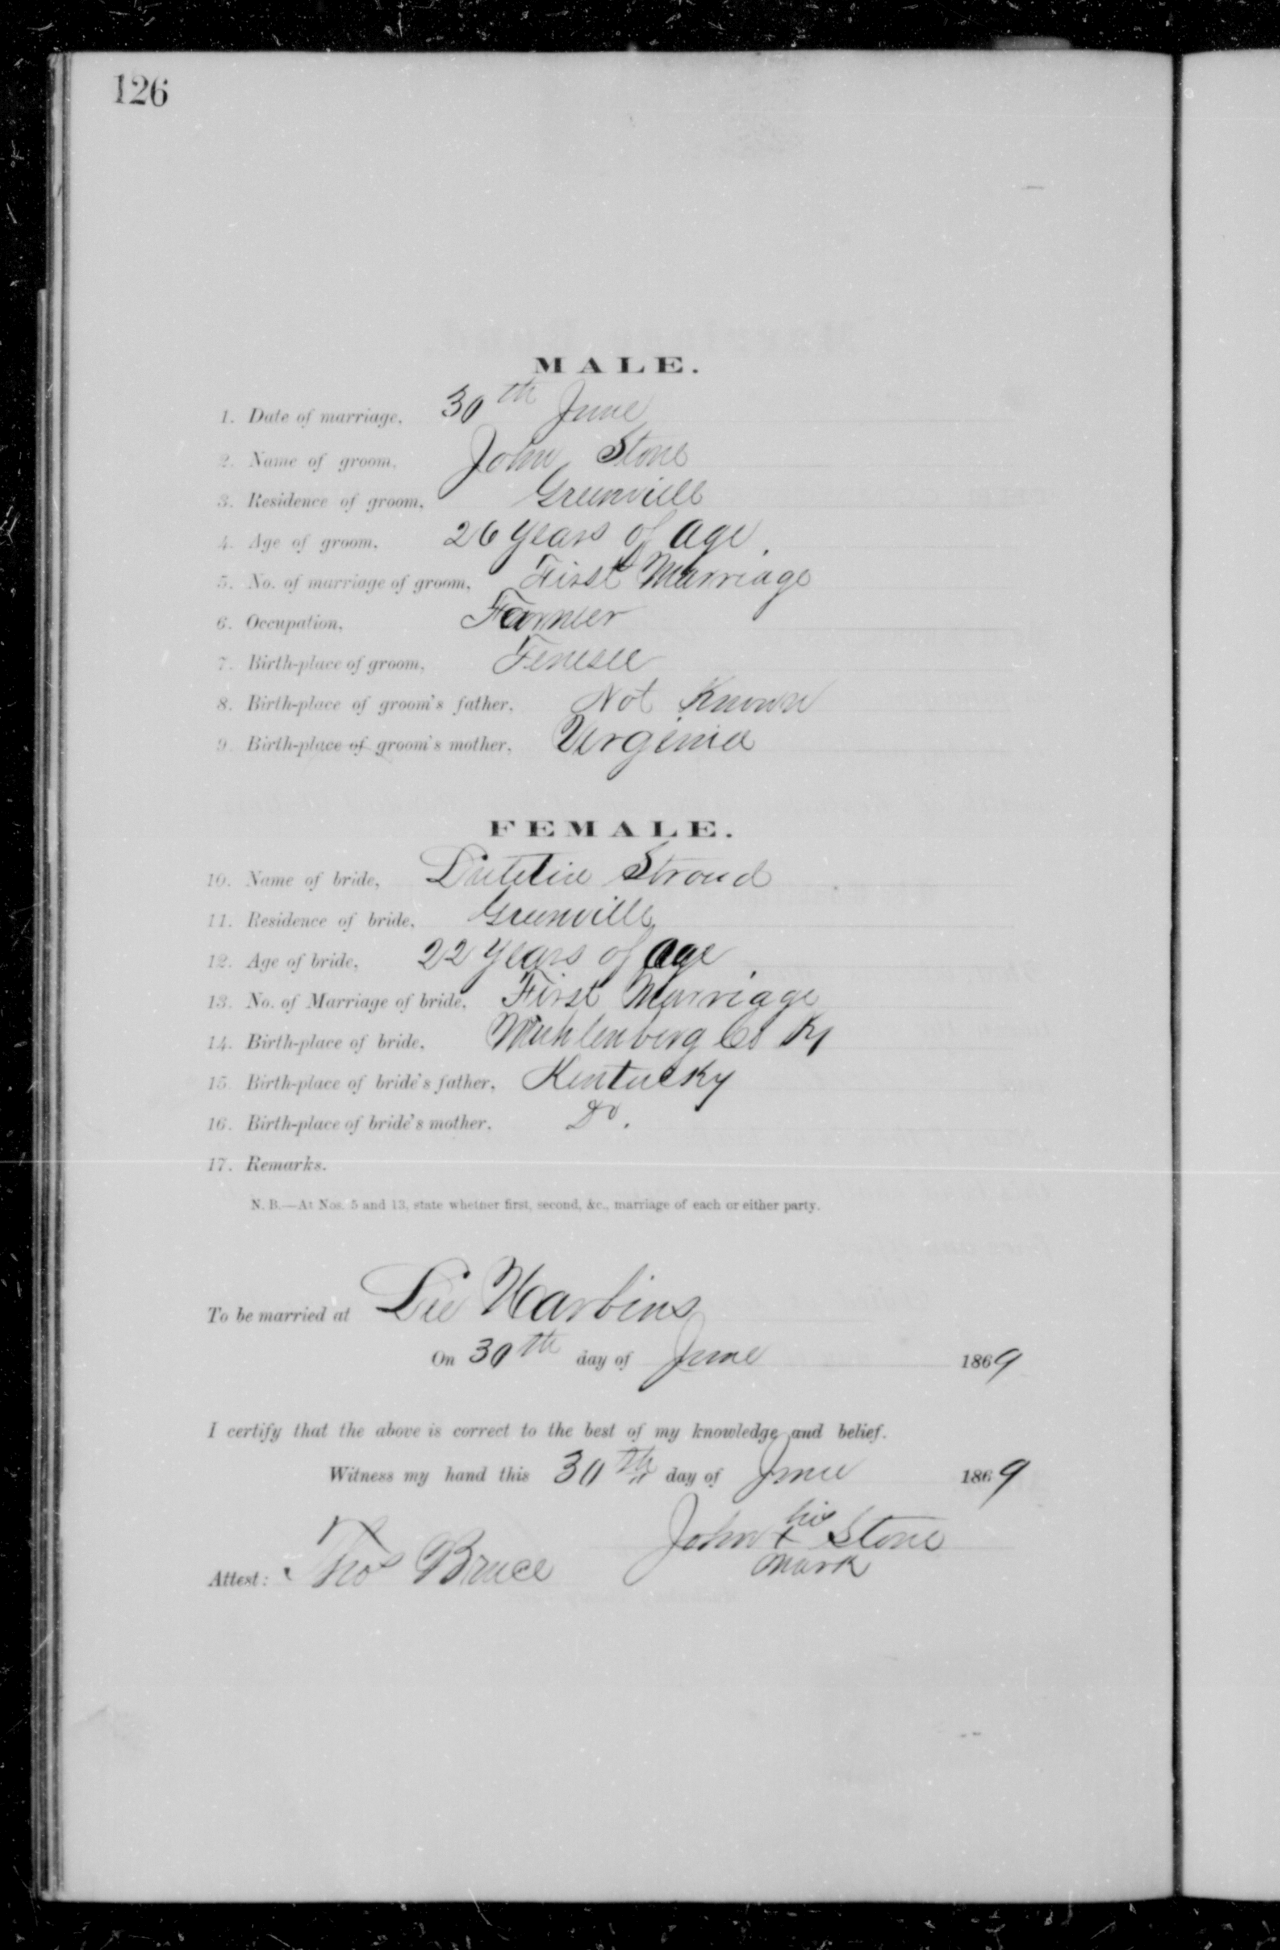 126
MALE.
1. Date of marriage, 30th June
2. Name of groom, John Stone
3. Residence of groom, Greenville
4. Age of groom, 26 years of age.
5. No. of marriage of groom, First Marriage
6. Occupation, Farmer
7. Birth-place of groom, Tenesee
8. Birth-place of groom's father, Not Known
9. Birth-place of groom's mother, Virginia
FEMALE.
10. Name of bride, Stroud
11. Residence of bride, Greenville
12. Age of bride, 22 years of age
13. No. of Marriage of bride, First Marriage
14. Birth-place of bride, Muhlenberg Co Ky
15. Birth-place of bride's father, Kentucky
16. Birth-place of bride's mother, Do.
17. Remarks.
N. B.—At Nos. 5 and 13, state whether first, second, &c., marriage of each or either party.
To be married at Lee Harbins
On 30th day of June 1869
I certify that the above is correct to the best of my knowledge and belief.
Witness my hand this 30th day of June 1869
his
John x Stone
mark
Attest: Thos Bruce